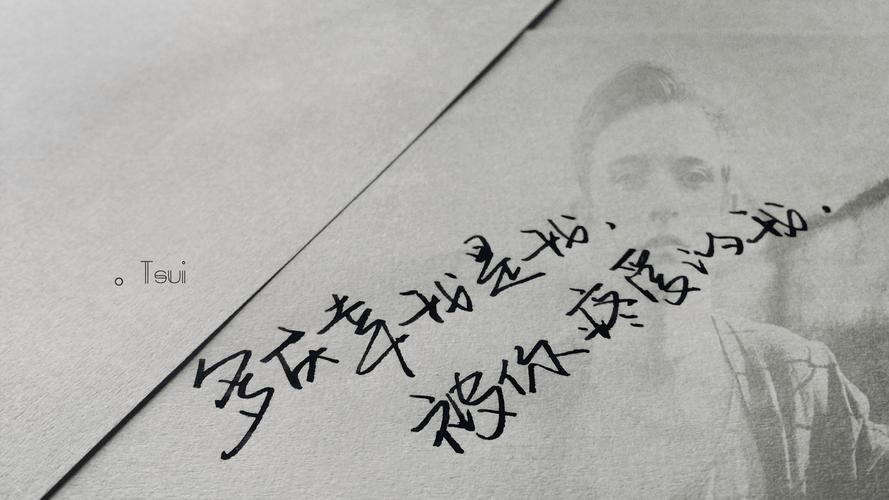 。Tsui
多庆幸我是我.
被你疼爱的我.